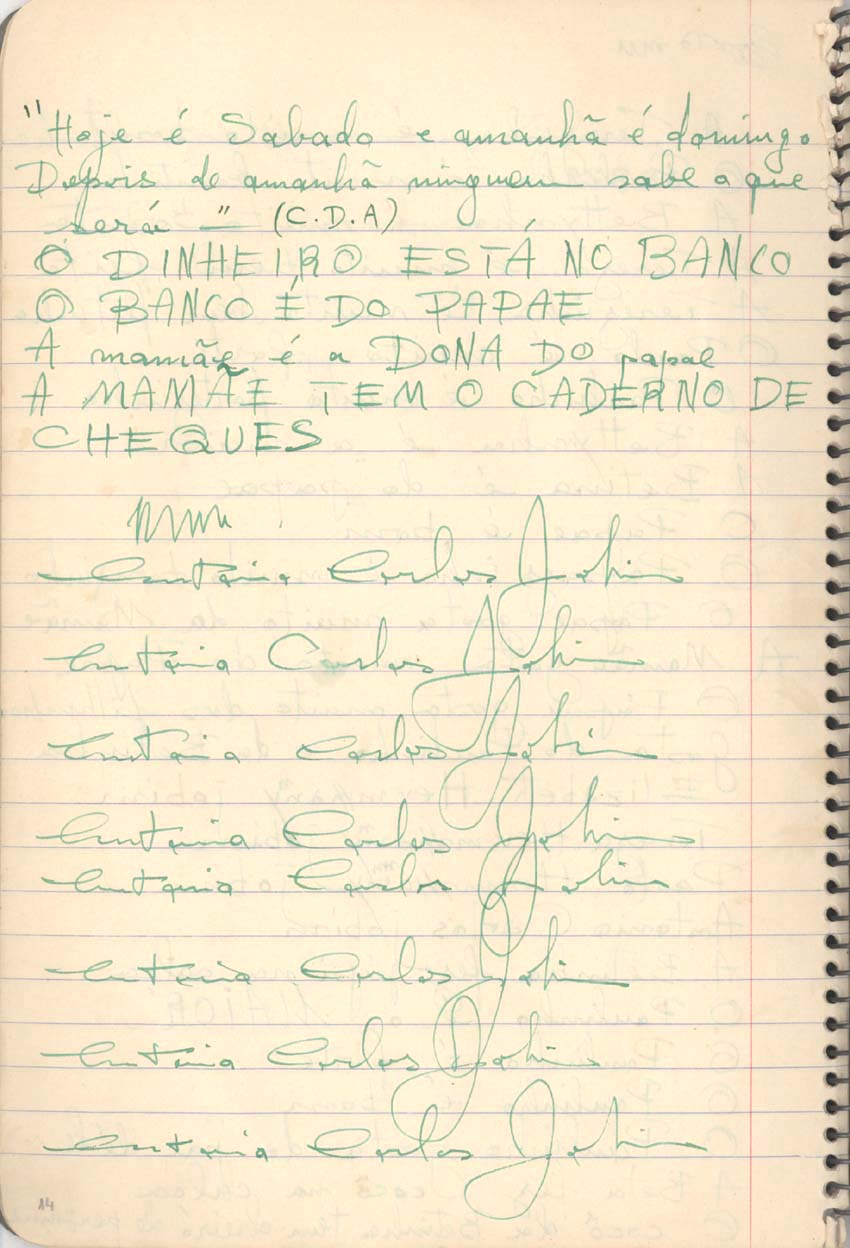 "Hoje é Sabado e amanhã é domingo
Depois de amanhã ninguem sabe o que
será" (C.D.A)
O DINHEIRO ESTÁ NO BANCO
O BANCO É DO PAPAE
A mamãe é a DONA DO papae
A MAMÃE TEM O CADERNO DE
CHEQUES
Antonio Carlos Jobim
Antonio Carlos Jobim
Antonio Carlos Jobim
Antonio Carlos Jobim
Antonio Carlos Jobim
Antonio Carlos Jobim
Antonio Carlos Jobim
Antonio Carlos Jobim
14